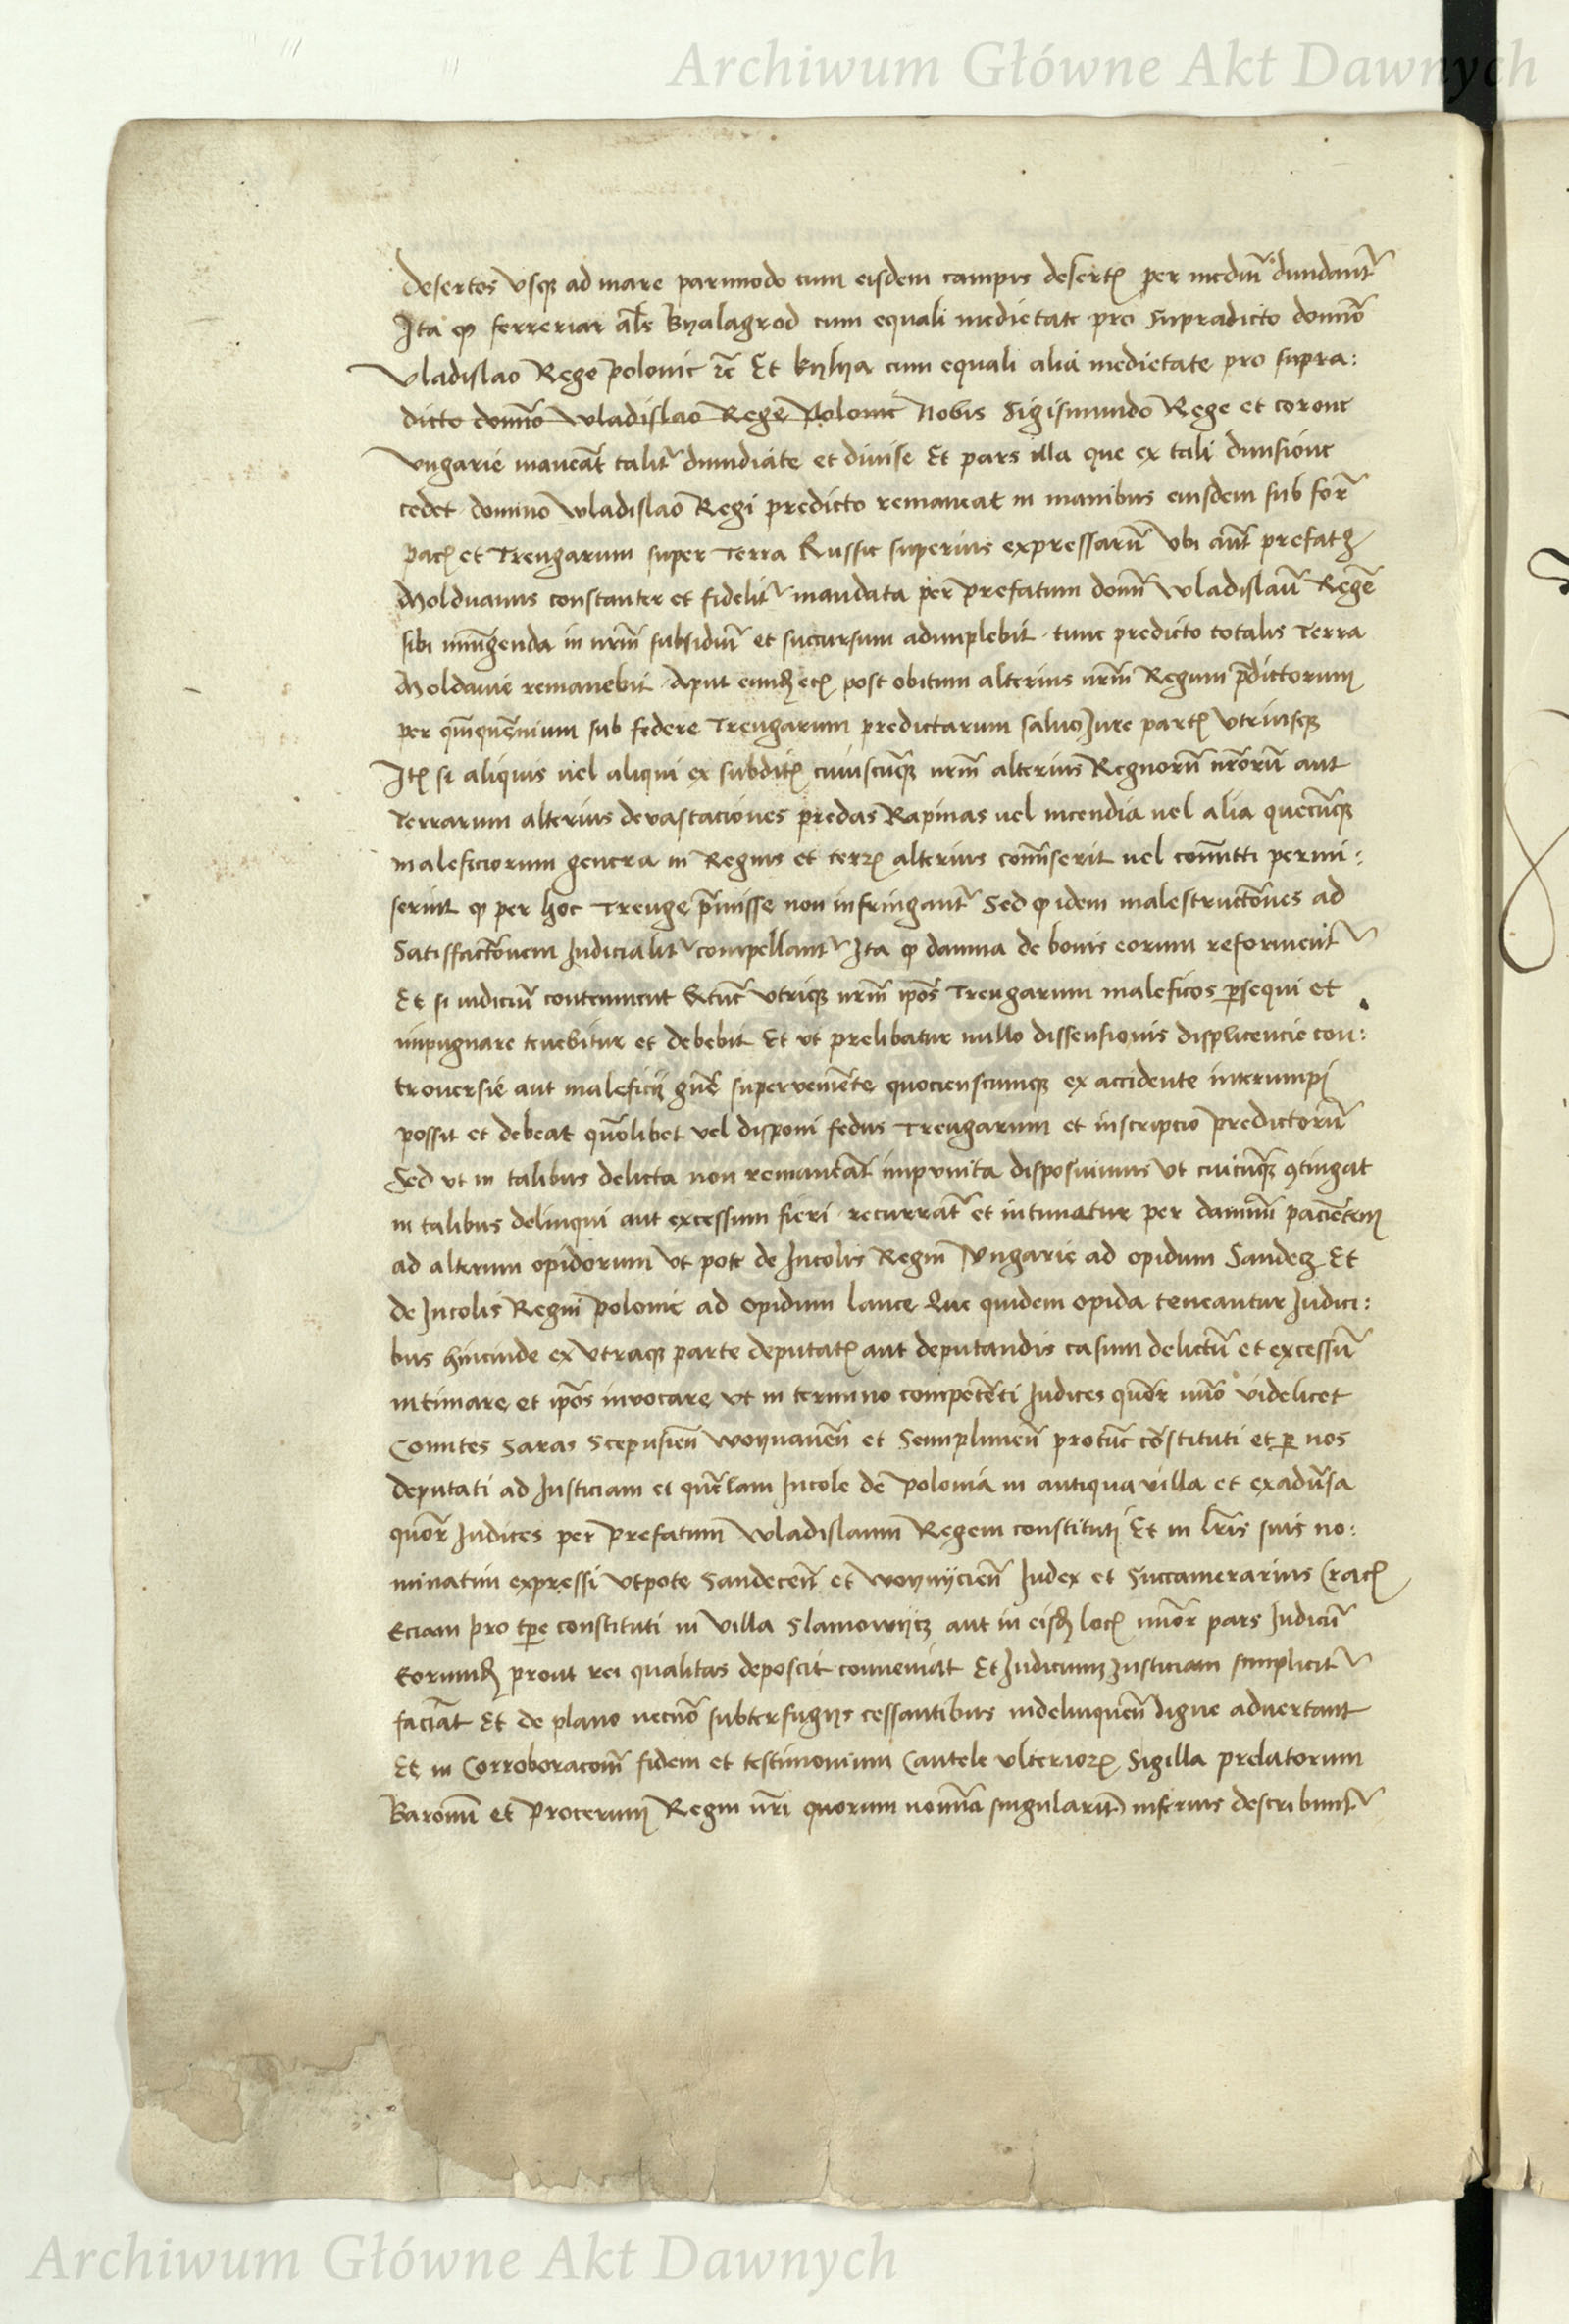 Archiwum Główne Akt Dawnych
desertos vsqȝ ad mare parimodo cum eisdem campis desertꝭ per mediū dimidant᷑
Ita ꝙ ferreriar al̄s Byalagrod cum equali medietate pro supradicto domīo
Vladislao Rege Polonie ⁊c̄ Et kylya cum equali alia medietate pro supra:
dicto domīo Wladislao Rege Polonie Nobis Sigismundo Rege et corone
Vngarie maneāt talit᷑ dimidiate et diuise Et pars illa que ex tali diuisione
cedet domino Wladislao Regi predicto remaneat in manibus eiusdem sub for̄
pacꝭ et Treugarum super Terra Russie superius expressarū Vbi aūt prefatꝰ
Molduanus constanter et fidelit᷑ mandata per prefatum domī Wladislaū Regē
sibi iniūgenda in nr̄m subsidiū et succursum adimplebit tunc predicto totalis Terra
Moldauie remanebit Aput eundē etꝭ post obitum alterius nr̄m Regum p̄dictorum
per quīquēnium sub federe Treugarum predictarum saluo Iure partꝭ Vtriusqȝ
Itꝭ si aliquis uel aliqui ex subditꝭ cuiuscūqȝ nr̄m alterius Regnorū nr̄orū aut
Terrarum alterius deuastaciones predas Rapinas uel incendia uel alia quecūqȝ
maleficiorum genera in Regnis et terrꝭ alterius cōmiserit uel cōmitti permi:
serint ꝙ per hoc Treuge p̄misse non infringant᷑ Sed ꝙ idem malestructōnes ad
Satisffactōnem Iudicialit᷑ compellant᷑ Ita ꝙ damna de bonis eorum reforment᷑
Et si iudiciū contemnent Extūc vtriqȝ nr̄m ip̄os Treugarum maleficos ꝑsequi et
impugnare tenebitur et debebit Et vt prelibatur nullo dissensionis displicencie con:
trouersie aut maleficij gn̄e superueniēte quocienscumqȝ ex accidente interrumpi
possit et debeat quōlibet vel disponi fedus Treugarum et inscripcio predictorū
Sed vt in talibus delicta non remaneāt impunita disposuimus Vt cuicūqȝ ꝯtingat
in talibus delinqui aut excessum fieri recurrat᷑ et intimatur per damnū pacientem
ad alterum opidorum vt pote de Incolis Regni Vngarie ad opidum Sandecz Et
de Incolis Regni Polonie ad opidum lance Que quidem opida teneantur Iudici:
bus hincinde ex Vtraqȝ parte deputatꝭ aut deputandis casum delictū et excessū
intimare et ip̄os inuocare vt in termino competēti Iudices quōr nr̄o videlicet
Comites Saras Scepusien̄ Woynauen̄ et Semplinien̄ protūc cōstituti et ꝑ nos
deputati ad Iusticiam et quer̄lam Incole de Polonia in antiqua villa et exadūsa
quōr Iudices per prefatum Wladislaum Regem constituti Et in lr̄is suis no:
minatim expressi Vtpote Sandecen̄ et Woyniicien̄ Iudex et Succamerarius Cracꝭ
Eciam pro tꝑe constituti in Villa Slamowijcz aut in eisdē locꝭ maīor pars Iudicū
Eorundē prout rei qualitas deposcit conueniāt Et Iudicium Iusticiam simplicit᷑
faciāt Et de plano necnō subterfugijs cessantibus indelinquen̄ digne aduertant
Et in Corroboracōm̄ fidem et testimonium Cautele vlteriorꝭ Sigilla prelatorum
Baronū et Procerum Regni nr̄i quorum nomīa singularit᷑ inferius describunt᷑
Archiwum Główne Akt Dawnych